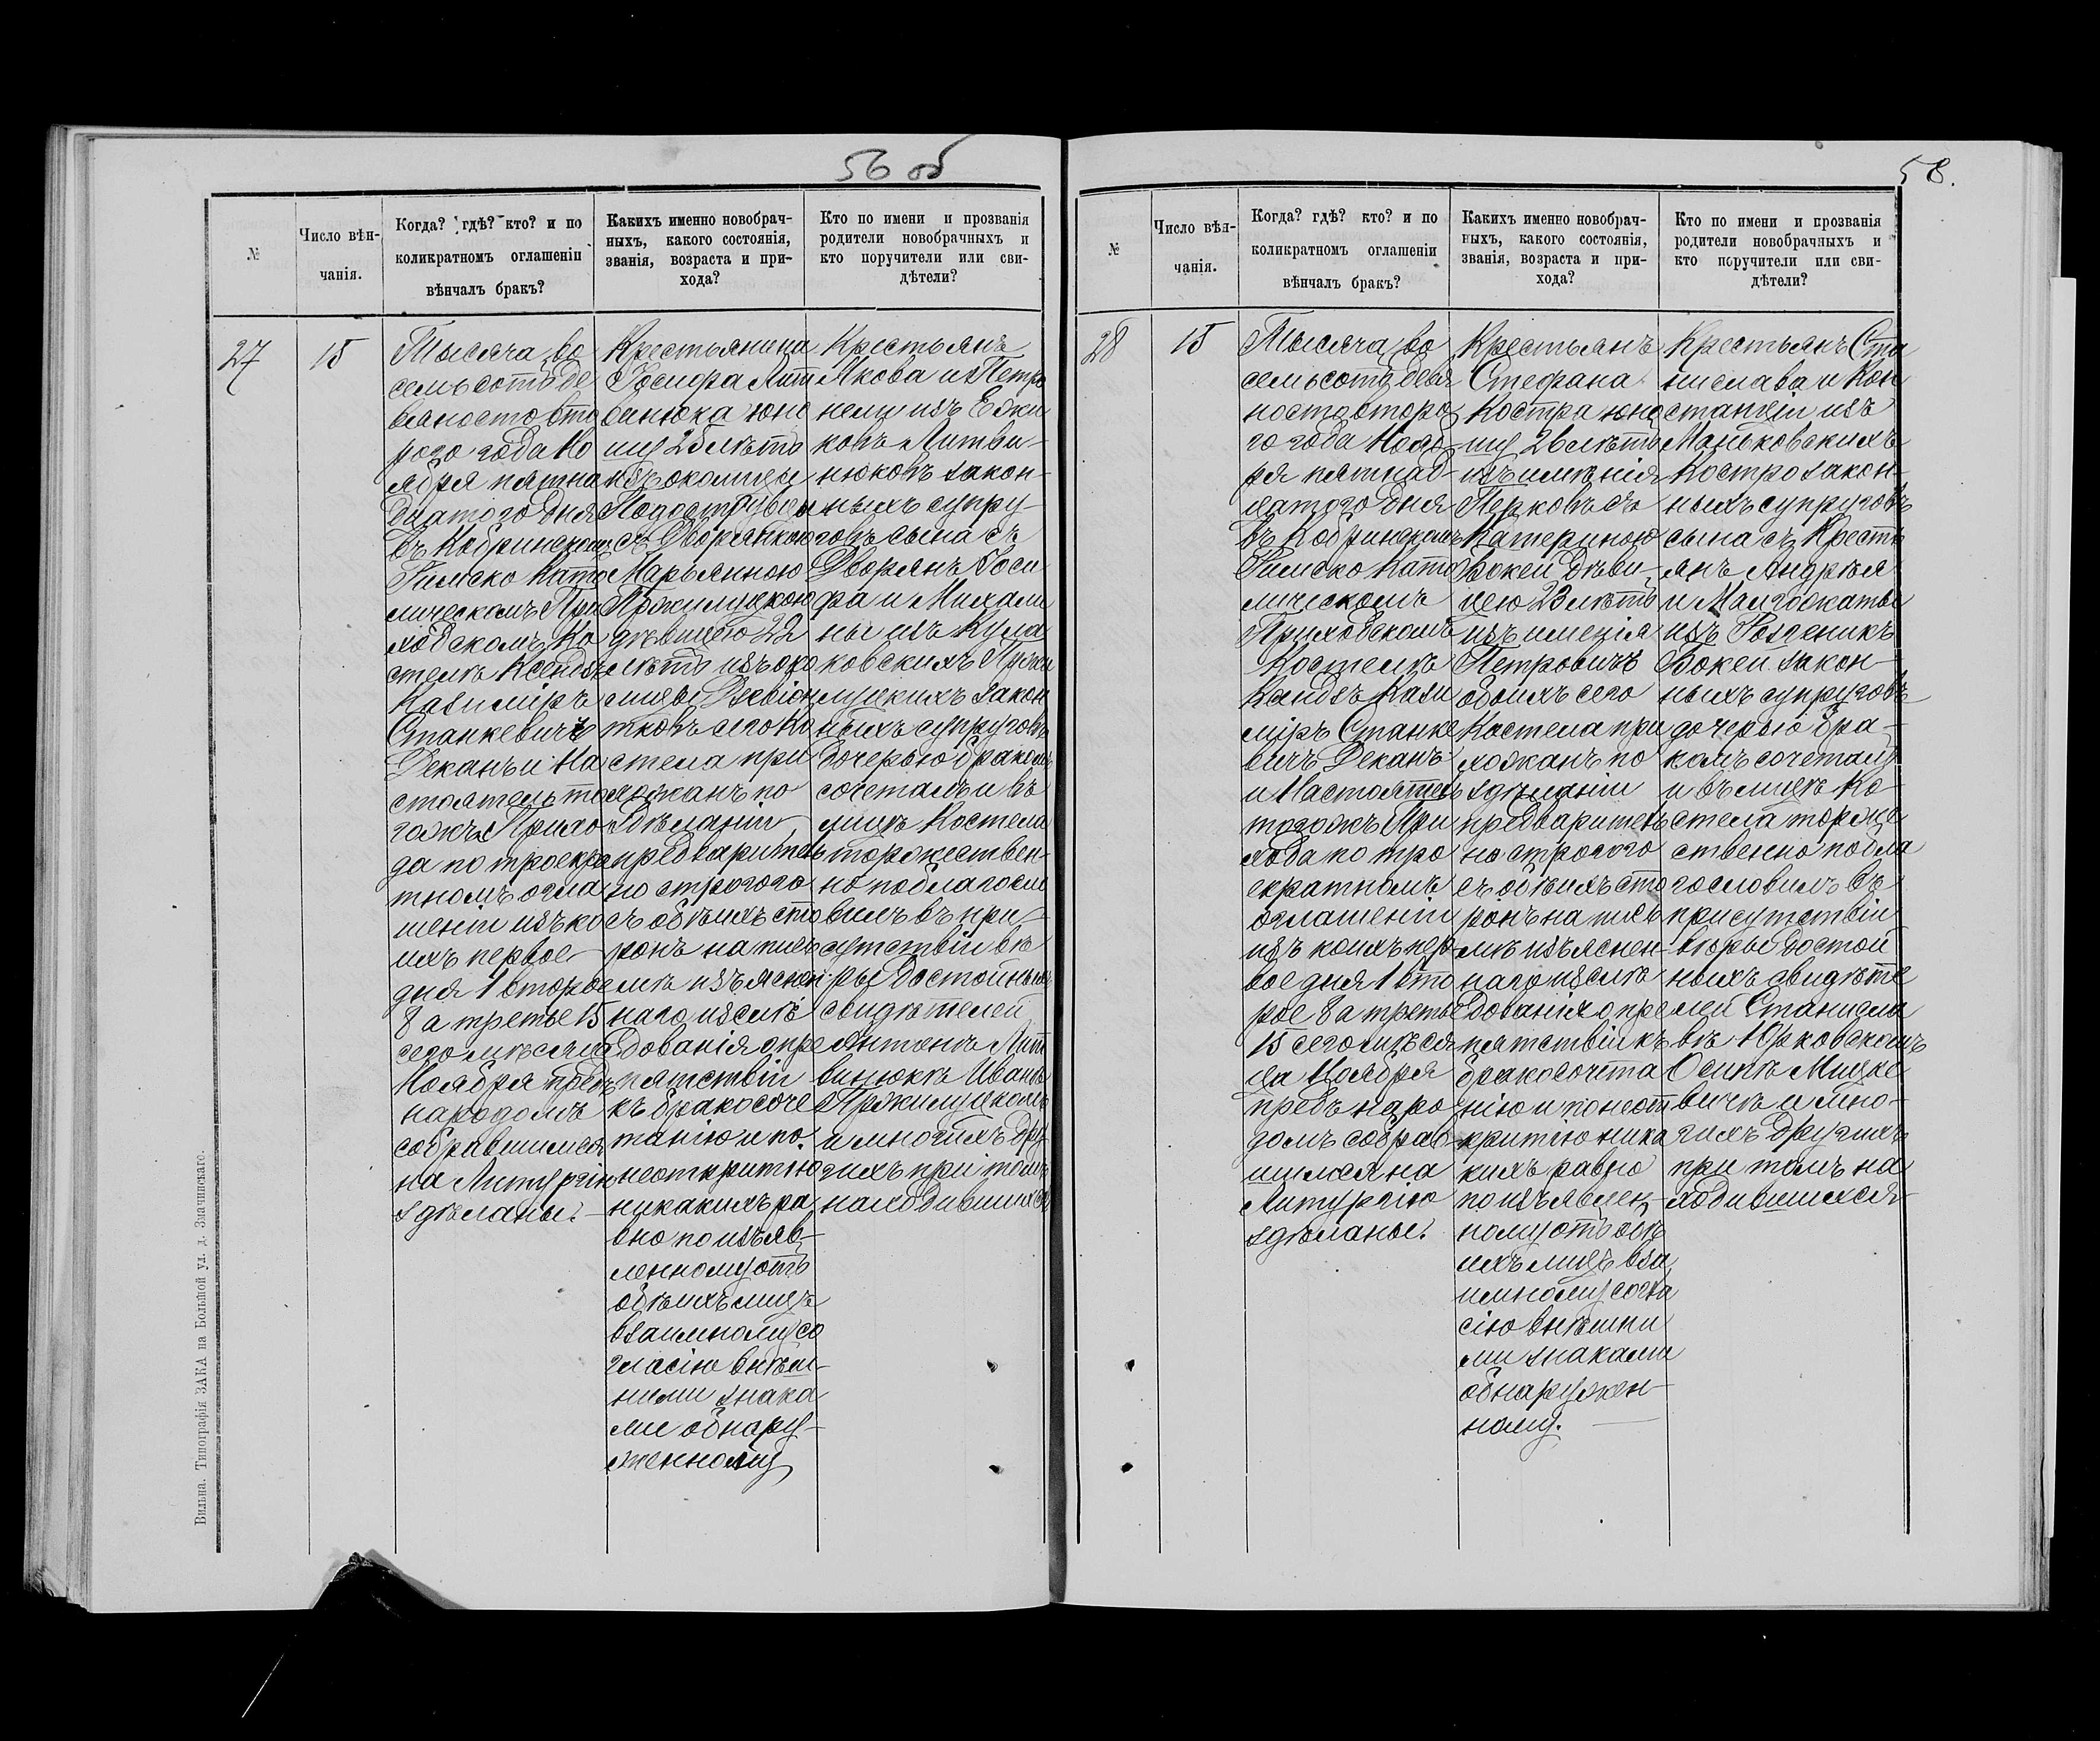 56 об
№
Число вѣн-
чанія.
Когда? гдѣ? кто? и по
коликратномъ оглашеніи
вѣнчалъ бракъ?
Какихъ именно новобрач-
ныхъ, какого состоянія,
званія, возраста и при-
хода?
Кто по имени и прозванія
родители новобрачныхъ и
кто поручители или сви-
дѣтели?
27
15
Тысяча во
семьсотъ де
вяносто вто
рого года Но
ября пятна
дцатого дня
въ Кобринском
Римско Като
лическомъ При
ходскомъ Ко
стелѣ Ксендзъ
Казимиръ
Станкевичъ
Деканъ и На
стоятель то
гожъ Прихо
да по троекра
тномъ огла
шеніи изъ ко
ихъ первое
дня 1 второе
8 а третье 15
сего мѣсяца
Ноября предъ
народомъ
собравшимся
на Литургію
здѣланы.
Крестьянина
Іосифа Лит
винюка юно
шу 25 лѣтъ
изъ околицы
съ Дворянкою
Марьянною
Пржилуцкою
дѣвицею 22
лѣтъ изъ око
лицы
тковъ сего Ко
стела при
хожанъ по
здѣланіи
предваритель
но строгого
съ обѣихъ сто
ронъ на пись
мѣ изъяснен
наго изслѣ
дованія о пре
пятствіи
къ бракосоче
танію и по
неоткритію
никакихъ ра
вно по изъяв-
ленному отъ
обѣихъ лицъ
взаимному со
гласію внѣш-
ними знака
ми обнару-
женному
Крестьянъ
Якова и Петро
нели изъ
ковъ Литви-
нюковъ закон-
ныхъ супру-
говъ сына съ
Дворянъ Іоси
фа и Михали
ны изъ Кула
ковскихъ Пржи
луцкихъ закон
ныхъ супруговъ
дочерью бракомъ
сочеталъ и въ
лицѣ Костела
торжествен-
но поблагосло
вилъ въ при-
сутствіи вѣ
ры достойныхъ
свидѣтелей
Антонѣ Лит
винюкѣ Иванѣ
Пржилуцкомъ
и многихъ дру
гихъ при томъ
находившихся
Вильна. Типографія ЗАКА на Большой ул. д. Значинскаго.
58.
№
Число вѣн-
чанія.
Когда? гдѣ? кто? и по
коликратномъ оглашеніи
вѣнчалъ бракъ?
Какихъ именно новобрач-
ныхъ, какого состоянія,
званія, возраста и при-
хода?
Кто по имени и прозванія
родители новобрачныхъ и
кто поручители или сви-
дѣтели?
28
15
Тысяча во
семьсотъ девя
носто второ
го года Нояб-
ря пятнад-
цатого дня
въ Кобринскомъ
Римско Като
лическомъ
Приходскомъ
Костелѣ
Ксендзъ Кази
міръ Станке
вичъ Деканъ
и Настоятель
тогожъ При
хода по трое
екратномъ
оглашеніи
изъ коихъ пер
вое дня 1 вто
рое 8 а третье
15 сего мѣся
ца Ноября
предъ наро
домъ собрав-
шимся на
Литургію
здѣланы.
Крестьянъ
Стефана
Костра юно
шу 26 лѣтъ
изъ имѣнія
Перковъ съ
Катериною
Бокей дѣви-
цею 23 лѣтъ
изъ имѣнія
Петровичъ
обоихъ сего
Костела при
хожанъ по
здѣланіи
предваритель
но строгого
съ обѣихъ сто
ронъ на пись
мѣ изъяснен-
наго изслѣ
дованія о пре
пятствіи къ
бракосочета
нію и понеот
критію ника
кихъ равно
по изъявлен-
ному отъ обѣ
ихъ лицъ вза
имному согла
сію внѣшни
ми знаками
обнаружен-
ному.
Крестьянъ Ста
нислава и Кон
станціи изъ
Маньковскихъ
Костро закон-
ныхъ супруговъ
сына съ Кресть
янъ Андрѣя
и Малгожаты
изъ
Бокеи закон-
ныхъ супруговъ
дочерью бра-
комъ сочеталъ
и въ лицѣ Ко-
стела торже
ственно побла
гословилъ въ
присутствіи
вѣры достой
ныхъ свидѣте
лей Станисла
вѣ Юрковскомъ
Осипѣ Мицке
вичѣ и мно-
гихъ другихъ
при томъ на
ходившихся